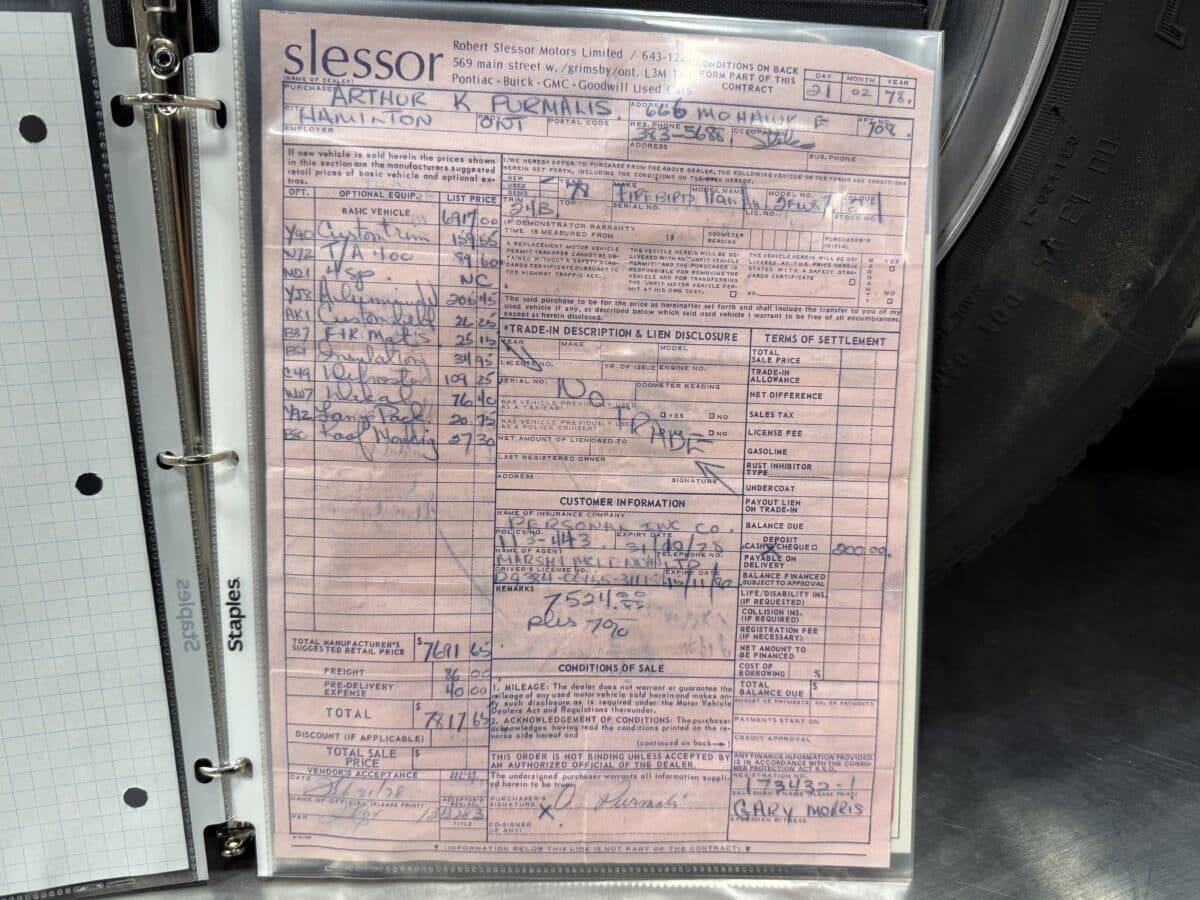 slessor
Robert Slessor Motors Limited / 643-12
569 main street w. /grimsby/ont. L3M 1
Pontiac - Buick - GMC - Goodwill Used Cars
CONDITIONS ON BACK
FORM PART OF THIS
CONTRACT
DAY MONTH YEAR
21 02 78.
(NAME OF DEALER)
PURCHASER ARTHUR K PURMALIS. ADDRESS 666 MOHAWK E APT. NO. 708.
CITY HAMILTON PROV. ONT POSTAL CODE RES. PHONE 383-5688
EMPLOYER ADDRESS BUS. PHONE
If new vehicle is sold herein the prices shown
in this section are the manufacturers suggested
retail prices of basic vehicle and optional ex-
tras.
OPT. OPTIONAL EQUIP. LIST PRICE
BASIC VEHICLE 6917 00
Y90 Custom trim 159 55
W72 T/A 400 89 60
MD1 4 sp. NC
YJ8 Aluminum 206 45
AK1 Custom belt 26 25
B37 F+R Mats 25 15
Insulation 34 95
C49 Defroster 109 25
Decals 76 40
Lamp Pack 20 75
Roof Molding 27 30
TOTAL MANUFACTURER'S
SUGGESTED RETAIL PRICE $ 7691 65
FREIGHT 86 00
PRE-DELIVERY
EXPENSE 40 00
TOTAL $ 7817 65
DISCOUNT (IF APPLICABLE)
TOTAL SALE
PRICE $
VENDOR'S ACCEPTANCE
DATE Feb 21/78
NAME OF OFFICIAL (PLEASE PRINT)
PER
TITLE
I/WE HEREBY OFFER TO PURCHASE FROM THE ABOVE DEALER, THE FOLLOWING VEHICLE ON THE TERMS AND CONDITIONS
HEREIN SET FORTH, INCLUDING THE CONDITIONS ON THE HEREOF.
NEW
USED
DEMO
MAKE FIREBIRD MODEL NAME Tran Am MODEL NO.
TRIM 24B TOP SERIAL NO. LIC. NO. STOCK NO.
IF DEMONSTRATOR WARRANTY
TIME IS MEASURED FROM 19 ODOMETER
READING PURCHASER'S
INITIAL
A REPLACEMENT MOTOR VEHICLE
PERMIT TRANSFER CANNOT BE OB-
TAINED WITHOUT A SAFETY STAN-
DARDS CERTIFICATE PURSUANT TO
THE HIGHWAY TRAFFIC ACT.
THE VEHICLE HEREIN WILL BE DE-
LIVERED WITH AN "UNFIT VEHICLE
PERMIT" AND THE PURCHASER IS
RESPONSIBLE FOR REMOVING THE
VEHICLE AND FOR TRANSFERRING
THE UNFIT MOTOR VEHICLE PER-
MIT AT HIS OWN COST.
THE VEHICLE HEREIN WILL BE DE-
LIVERED AT THE PRICE HEREIN
STATED WITH A SAFETY STAN-
DARDS CERTIFICATE
NO.
WARRANTY
YES
NO
The said purchase to be for the price as hereinafter set forth and shall include the transfer to you of my
used vehicle if any, as described below which said used vehicle I warrant to be free of all encumbrances
except as herein disclosed.
*TRADE-IN DESCRIPTION & LIEN DISCLOSURE
YEAR MAKE MODEL
LICENSE NO. YR. OF ISSUE ENGINE NO.
SERIAL NO. ODOMETER READING
WAS VEHICLE PREVIOUSLY USED
AS A TAXICAB? YES NO
WAS VEHICLE PREVIOUSLY USED
AS A POLICE CRUISER? YES NO
No TRADE
NET AMOUNT OF LIEN OWED TO
LAST REGISTERED OWNER
ADDRESS SIGNATURE
CUSTOMER INFORMATION
NAME OF INSURANCE COMPANY
PERSONAL INC CO.
POLICY NO. 113-443 EXPIRY DATE 31/10/78
NAME OF AGENT TELEPHONE NO.
MARSH & MCLENNAN LTD
DRIVER'S LICENSE NO. EXPIRY DATE
REMARKS
7524.00
plus 7%
CONDITIONS OF SALE
1. MILEAGE: The dealer does not warrant or guarantee the
mileage of any used motor vehicle sold herein and makes on-
ly such disclosure as is required under the Motor Vehicle
Dealers Act and Regulations thereunder.
2. ACKNOWLEDGEMENT OF CONDITIONS: The purchaser
acknowledges having read the conditions printed on the re-
verse side hereof and
(continued on back)
THIS ORDER IS NOT BINDING UNLESS ACCEPTED BY
AN AUTHORIZED OFFICIAL OF THE DEALER.
The undersigned purchaser warrants all information suppli-
ed herein to be true.
PURCHASER'S
SIGNATURE X A Purmalis
CO-SIGNER
(IF ANY)
TERMS OF SETTLEMENT
TOTAL
SALE PRICE
TRADE-IN
ALLOWANCE
NET DIFFERENCE
SALES TAX
LICENSE FEE
GASOLINE
RUST INHIBITOR
TYPE
UNDERCOAT
PAYOUT LIEN
ON TRADE-IN
BALANCE DUE
DEPOSIT
CASH CHEQUE 200 00
PAYABLE ON
DELIVERY
BALANCE FINANCED
SUBJECT TO APPROVAL
LIFE/DISABILITY INS.
(IF REQUESTED)
COLLISION INS.
(IF REQUIRED)
REGISTRATION FEE
(IF NECESSARY)
NET AMOUNT TO
BE FINANCED
COST OF
BORROWING %
TOTAL
BALANCE DUE $
AMOUNT OF PAYMENTS NO. OF PAYMENTS
PAYMENTS START ON
CREDIT APPROVAL
ANY FINANCE INFORMATION PROVIDED
IS IN ACCORDANCE WITH THE CONSU-
MER PROTECTION ACT R.S.O.
REGISTRATION NO.
173432-1
SALESMAN'S NAME (PLEASE PRINT)
GARY MORRIS
SALESMAN WITNESS
(INFORMATION BELOW THIS LINE IS NOT PART OF THE CONTRACT)
Staples